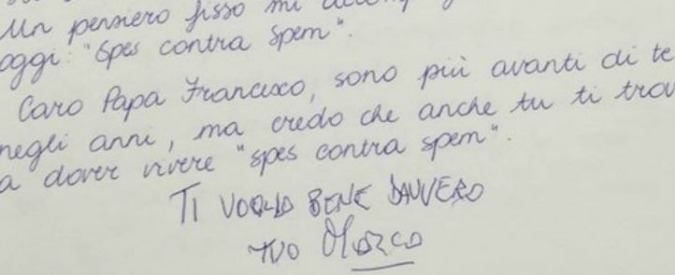 Un pensiero fisso mi accompag
oggi: "Spes contra spem".
Caro Papa Francesco, sono più avanti di te
negli anni, ma credo che anche tu ti trov
a dover vivere "spes contra spem".
TI VOGLIO BENE DAVVERO
TUO Marco